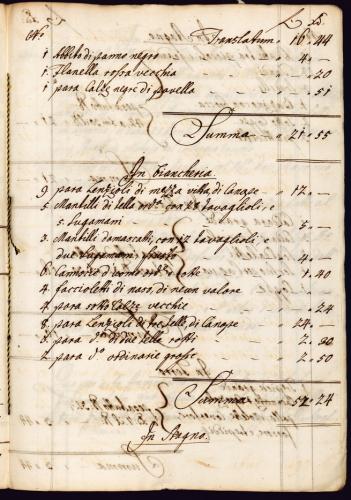 L. xs.
No. Translatum 16 44
1 Abbito di panno negro 4. –
1 flanella rossa vecchia – 20
1 para Calze negre di pavella – 51
Summa 21. 55
In biancheria
9 para Lenzioli di mezza vitta, di Canape 12. –
5 Mantilli di tella ord.rio con 12 tavaglioli, e
5 Sugamani 5. –
3 Mantille damascati, con 12 tavaglioli
due Sugamani 4. –
6 Camiscie d'uomo 1. 40
4 faccioletti di naso, di niun valore
4 para sotto Calze vecchie – 24
8 para Lenzioli di tre telle, di Canape 24. –
3 para d.o di due telle rotti 2. 80
2 para d.o ordinarie grosse 2. 50
Summa 52. 24
In Stagno.